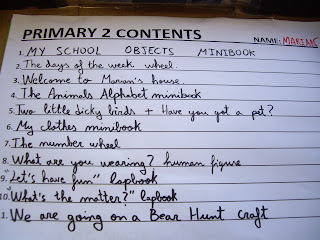 PRIMARY 2 CONTENTS
NAME: MARIAN
1. MY SCHOOL OBJECTS MINIBOOK
2. The days of the week wheel.
3. Welcome to Marian's house.
4. The Animals Alphabet minibook
5. Two little dicky birds + Have you got a pet?
6. My clothes minibook
7. The number wheel
8. What are you wearing? human figure
9. "Let's have fun" lapbook
10. "What's the matter?" lapbook
1. We are going on a Bear Hunt craft